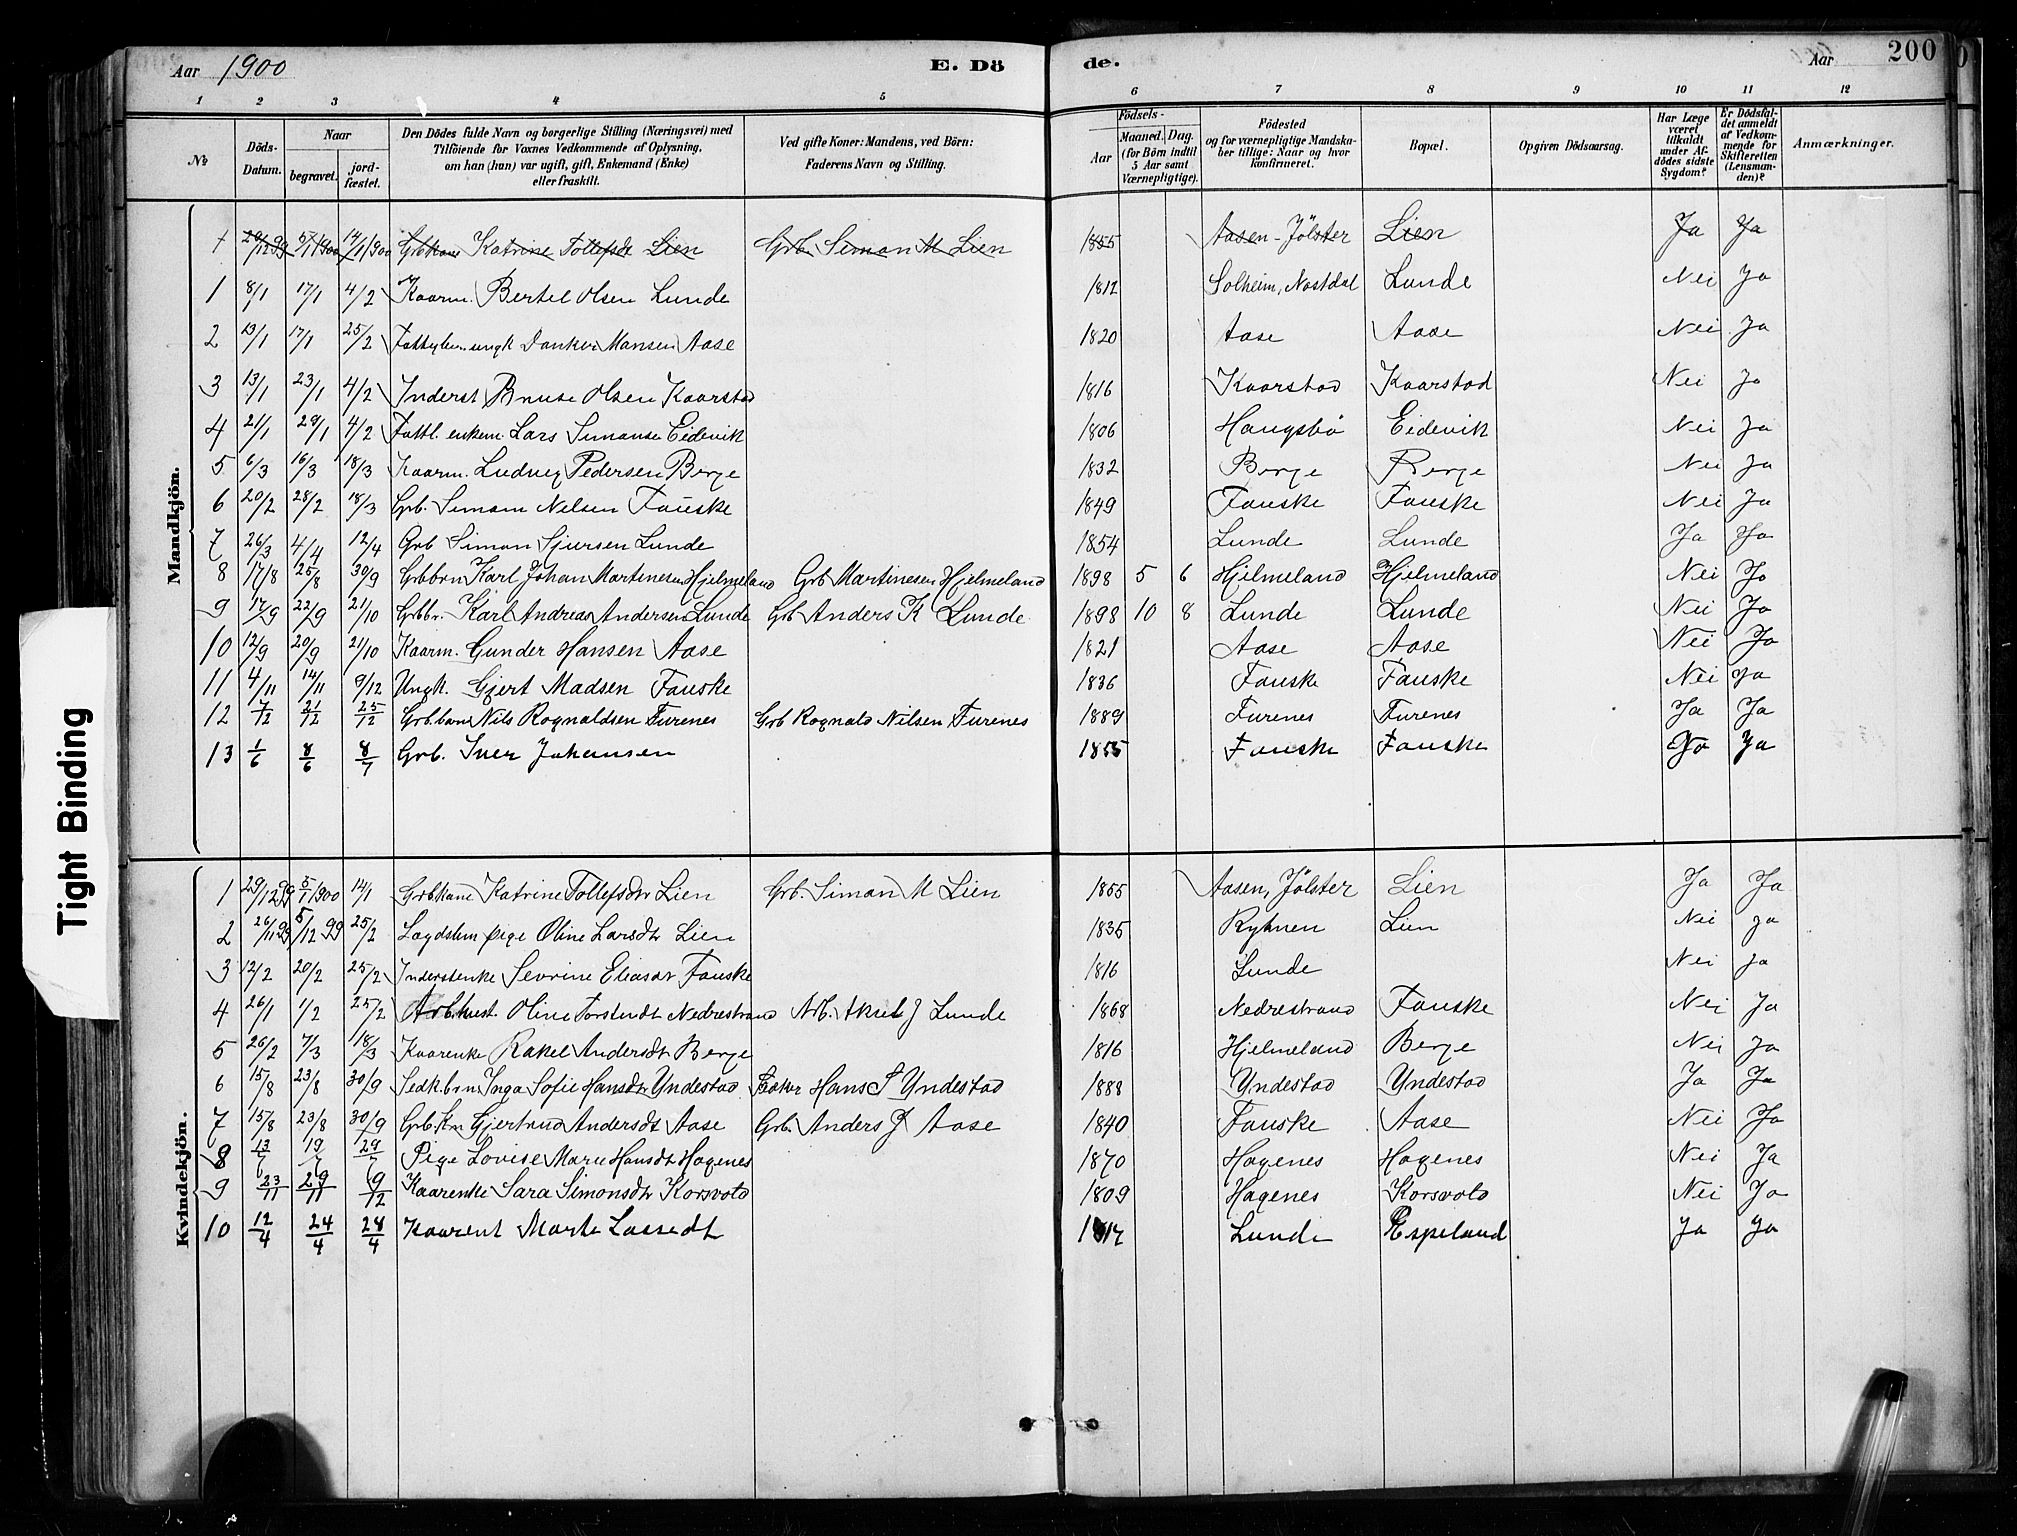 Aar 1900 E. Dö de. Aar 200
1 2 3 4 5 6 7 8 9 10 11 12
No
Döds-Datum.
Naar begravet. jordfæstet.
Den Dödes fulde Navn og borgerlige Stilling (Næringsvei) med Tilföiende for Voxnes Vedkommende af Oplysning, om han (hun) var ugift, gift, Enkemand (Enke) eller fraskilt.
Ved gifte Koner: Mandens, ved Börn: Faderens Navn og Stilling.
Födsels- Aar Maaned. Dag. (for Börn indtil 5 Aar samt Værnepligtige).
Födested og for værnepligtige Mandskaber tillige: Naar og hvor konfirmeret.
Bopæl.
Opgiven Dödsaarsag.
Har Læge været tilkaldt under Afdödes sidste Sygdom?
Er Dödsfaldet anmeldt af Vedkommende for Skifteretten (Lensmanden)?
Anmærkninger.
Mandkjön.
1 29/12 99 5/1 1900 14/1 1900 Grbkone Katrine Tollefsdt Lien Grb. Simon M Lien 1855 Aasen-Jölster Lien Ja Ja
1 8/1 17/1 4/2 Kaarm. Bertel Olsen Lunde 1812 Solheim, Nostdal Lunde Nei Ja
2 13/1 17/1 25/2 Danker Mansen Aase 1820 Aase Aase Nei Ja
3 13/1 23/1 4/2 Inderst Bruse Olsen Kaarstad 1816 Kaarstad Kaarstad Nei Ja
4 21/1 29/1 4/2 Fattl. enkem. Lars Simonsen Eidevik 1806 Haugsbø Eidevik Nei Ja
5 6/3 16/3 18/3 Kaarm. Ludvig Pedersen Berge 1832 Berge Berge Nei Ja
6 20/2 28/2 18/3 Grb. Simon Nilsen Fauske 1849 Fauske Fauske Nei Ja
7 26/3 4/4 12/4 Grb Simon Sjursen Lunde 1854 Lunde Lunde Ja Ja
8 17/8 25/8 30/9 Grbbrn Karl Johan Martinesen Hjelmeland Grb Martinesen Hjelmeland 1898 5 6 Hjelmeland Hjelmeland Nei Ja
9 17/9 22/9 21/10 Grbbr. Karl Andreas Andersen Lunde Grb Anders K Lunde 1898 10 8 Lunde Lunde Nei Ja
10 12/9 20/9 21/10 Kaarm. Gunder Hansen Aase 1821 Aase Aase Nei Ja
11 4/11 14/11 9/12 Ungk. Gjert Madsen Fauske 1836 Fauske Fauske Nei Ja
12 7/12 21/12 25/12 Grb.barn Nils Rognaldsen Furenes Grb Rognald Nilsen Furenes 1889 Furenes Furenes Ja Ja
13 1/6 8/6 8/7 Grb. Iver Johansen 1855 Fauske Fauske Ja Ja
Kvindekjön.
1 29/12 99 5/1 1900 14/1 Grbkone Katrine Tollefsdtr Lien Grb. Simon M Lien 1855 Aasen, Jölster Lien Ja Ja
2 26/11 99 5/12 99 25/2 Lægdslem pige Oline Larsdtr Lien 1835 Ryhnen Lien Nei Ja
3 12/2 20/2 25/2 Inderstenke Sevrine Eliasdt Fauske 1816 Lunde Nei Ja
4 26/1 1/2 25/2 Arb.hust. Oline Torstendt Nedrestrand Arb. Aksel J Lunde 1868 Nedrestrand Fauske Nei Ja
5 26/2 7/3 18/3 Kaarenke Rakel Andersdt Berge 1816 Hjelmeland Berge Nei Ja
6 15/8 23/8 30/9 Sedk.brn Inga Sofie Hansdtr Yndestad Hans S Yndestad 1888 Yndestad Yndestad Ja Ja
7 15/8 23/8 30/9 Grb.kn Gjertrud Andersdt Aase Grb. Anders J Aase 1840 Fauske Aase Nei Ja
8 13/7 19/7 29/7 Pige Lovise Marie Hansdt Hagenes 1870 Hagenes Hagenes Nei Ja
9 23/11 29/11 9/12 Kaarenke Sara Simonsdtr Korsvold 1809 Hagenes Korsvold Nei Ja
10 12/4 24/4 28/4 Kaarent Marte Lassedt 1817 Lunde Espeland Ja Ja
Tight Binding